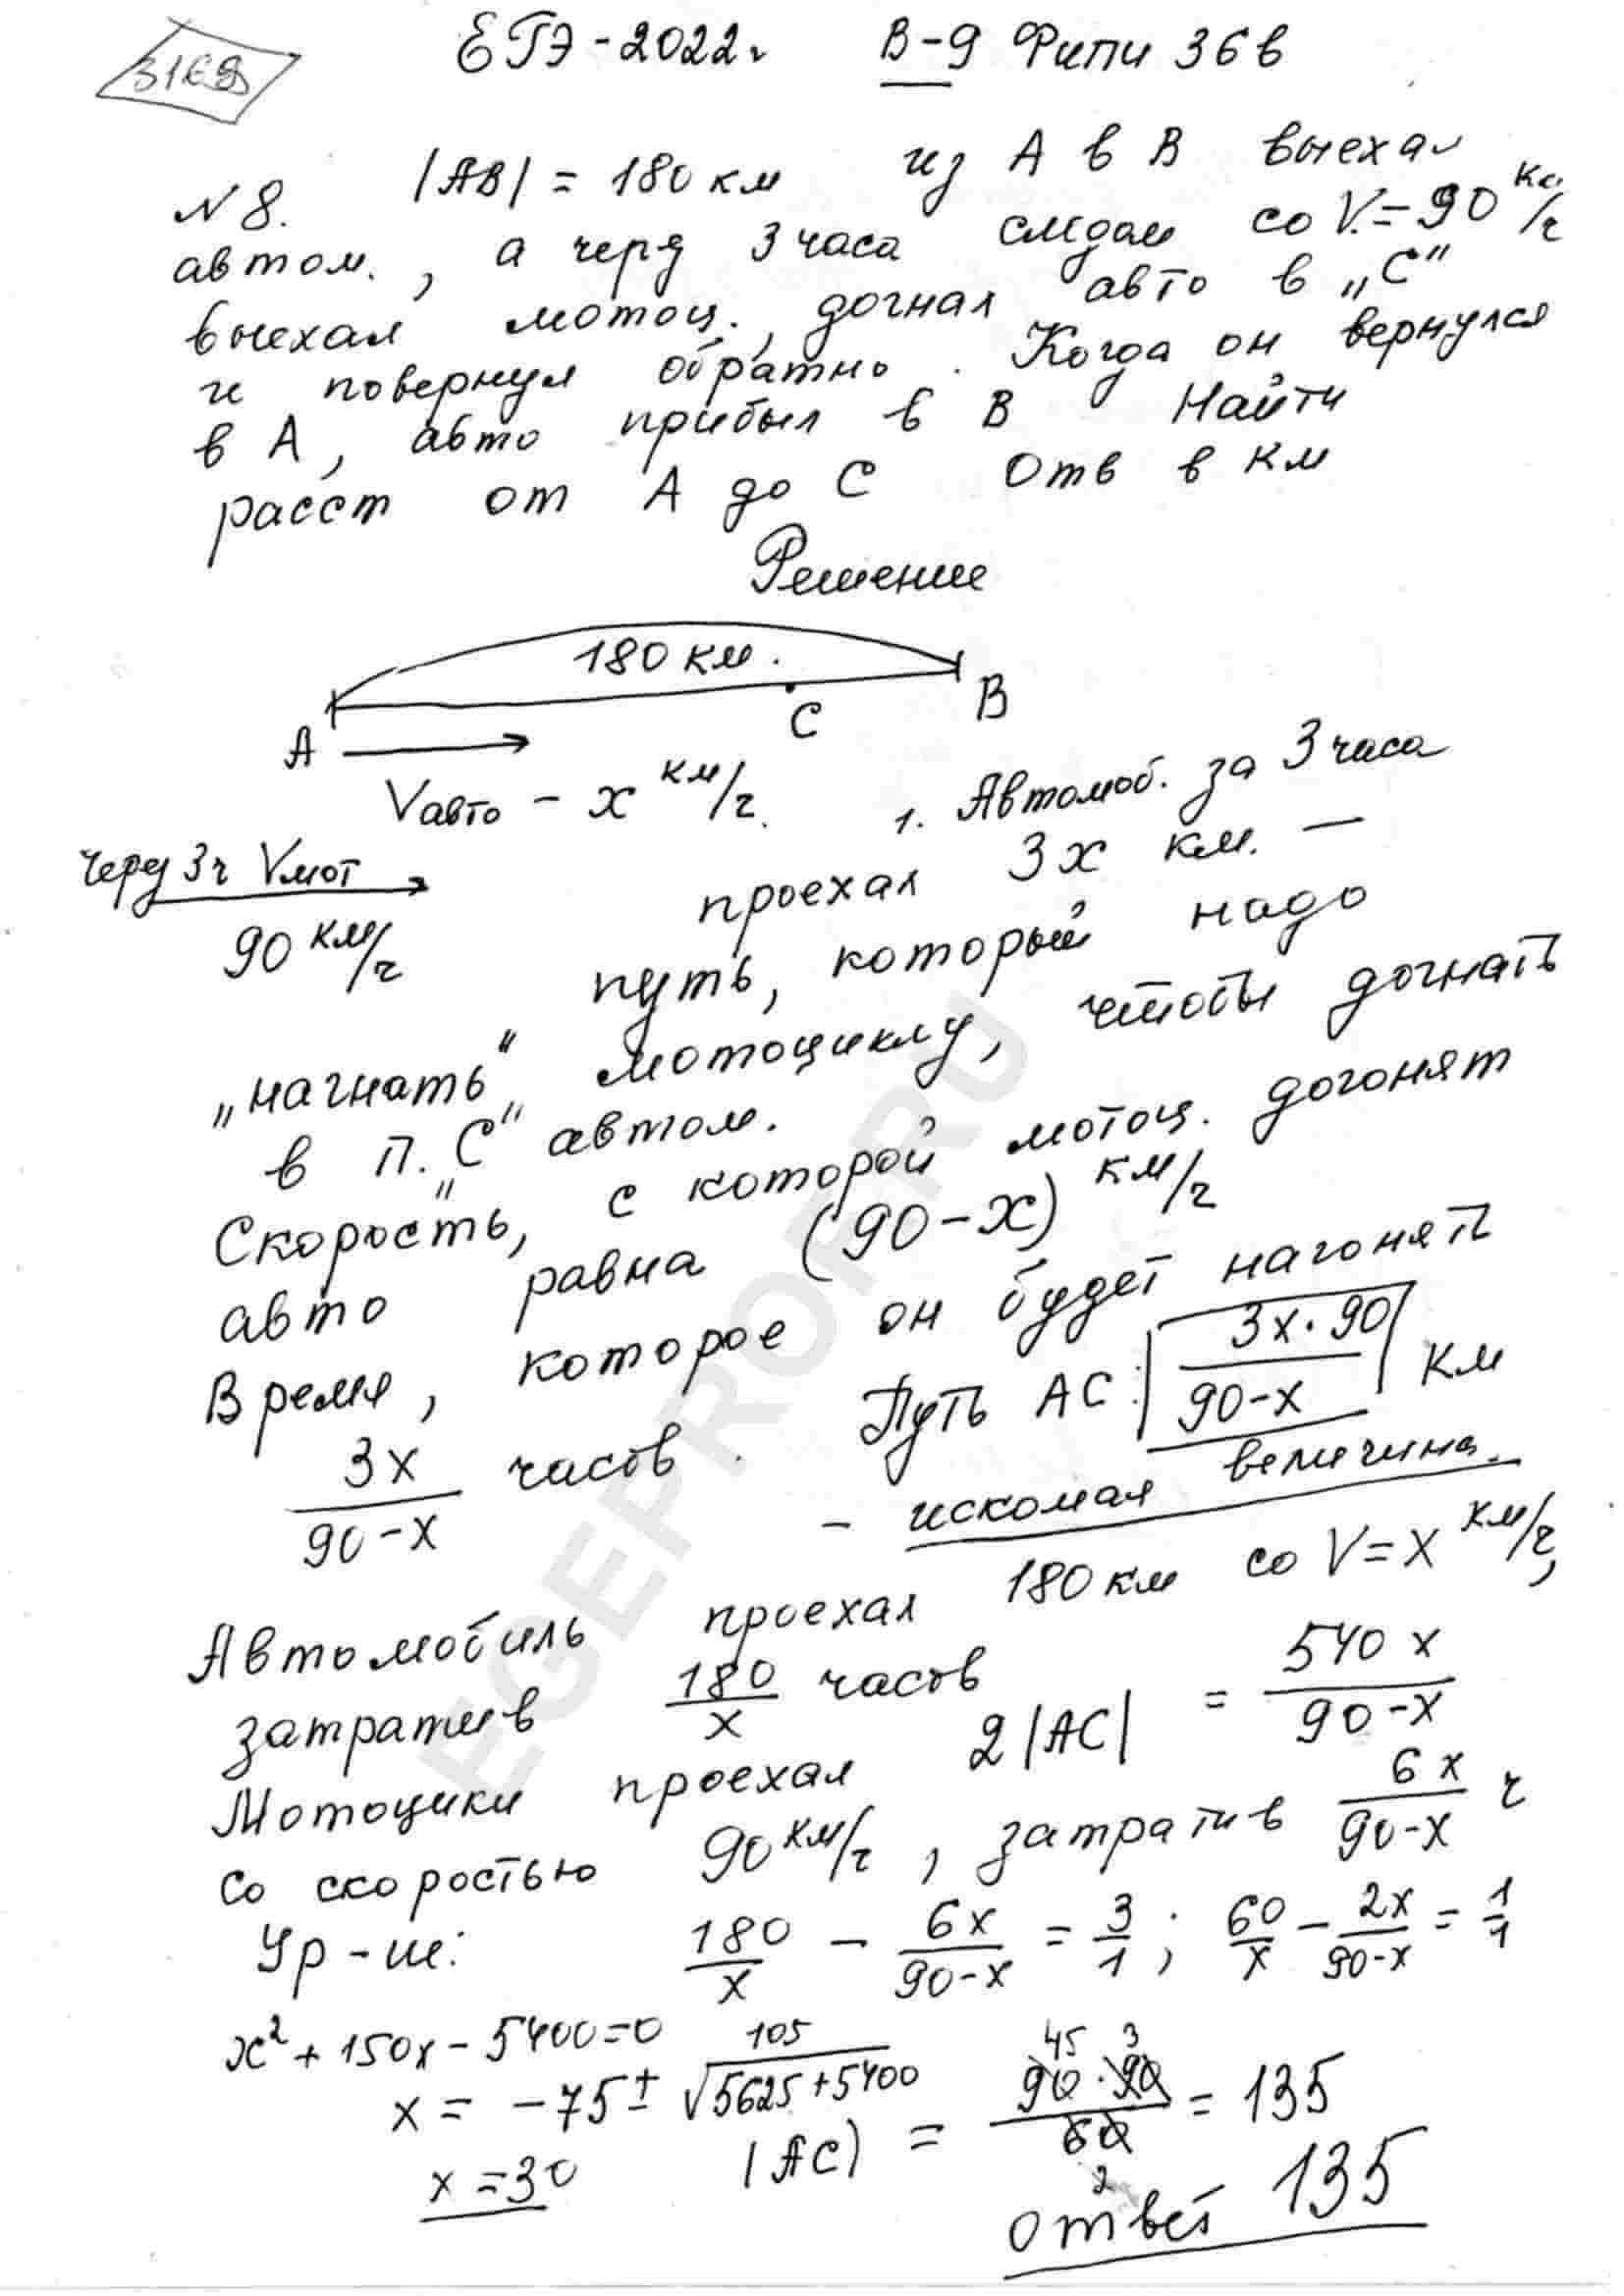 ЕГЭ-2022г В-9 Фипи 36в
№8. |АВ| = 180 км из А в В выехал
автом., а через 3 часа следом со V = 90 км/ч
выехал мотоц., догнал авто в „С"
и повернул обратно. Когда он вернулся
в А, авто прибыл в В Найти
расст от А до С Отв в км
Решение
180 км.
А С В
Vавто - x км/ч.
Через 3ч Vмот
90 км/ч
1. Автомоб. за 3 часа
проехал 3x км. —
путь, который надо
„нагнать" мотоциклу, чтобы догнать
в п. „С" автом.
Скорость, с которой мотоц. догонят
авто равна (90-x) км/ч
Время, которое он будет нагонять
3x/(90-x) часов. Путь АС: 3x·90/(90-x) км
- искомая величина.
Автомобиль проехал 180 км со V=x км/ч,
затратив 180/x часов
Мотоцикл проехал 2|АС| = 540x/(90-x)
со скоростью 90 км/ч, затратив 6x/(90-x) ч
Ур-ие: 180/x - 6x/(90-x) = 3/1; 60/x - 2x/(90-x) = 1/1
x² + 150x - 5400=0
105
x = -75 ± √5625+5400
45 3
|АС| = 90·90/60 = 135
2
x = 30
ответ 135
EGEPROF.RU